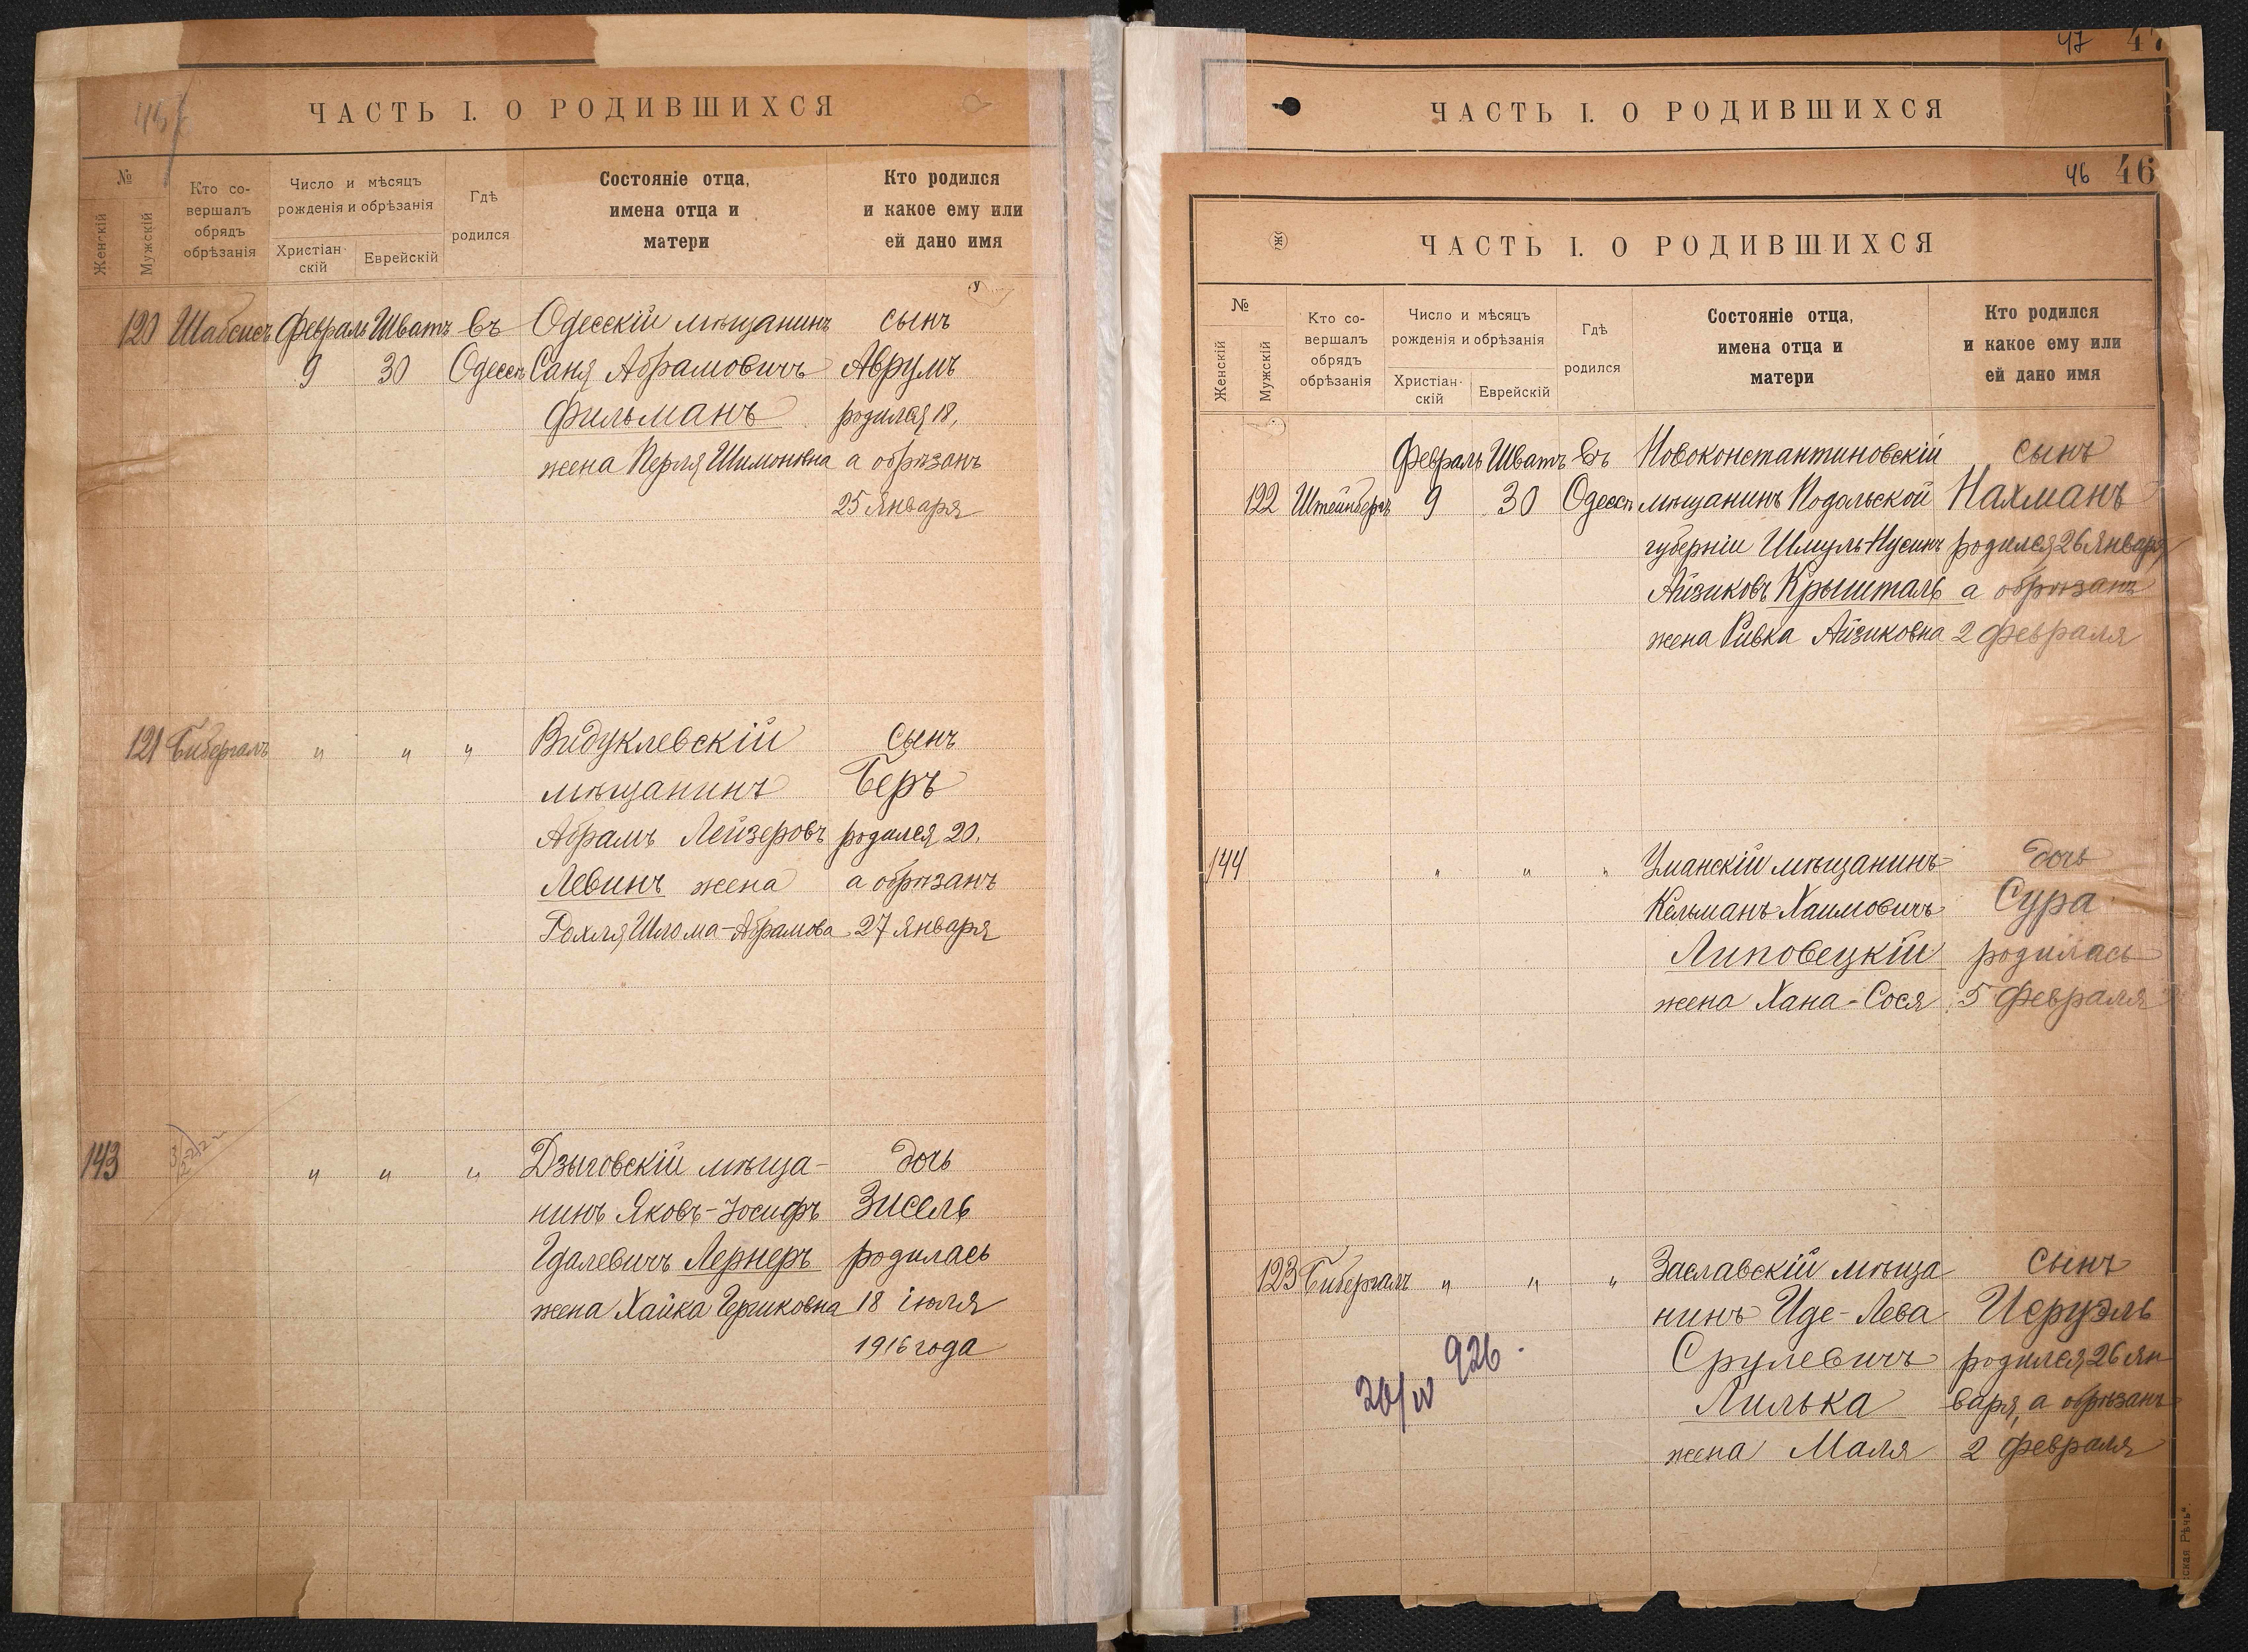 ЧАСТЬ I. О РОДИВШИХСЯ
№
Женскій
Мужскій
Кто со-
вершалъ
обрядъ
обрѣзанія
Число и мѣсяцъ
рожденія и обрѣзанія
Христіан-
скій
Еврейскій
Гдѣ
родился
Состояніе отца,
имена отца и
матери
Кто родился
и какое ему или
ей дано имя
120 Шабсисъ Февраль Шватъ Въ Одесскій мѣщанинъ сынъ
9 30 Одессѣ Саня Абрамовичъ Аврумъ
Фильманъ родился 18,
жена Перля Шимоновна а обрѣзанъ
25 Января
121 Бибергалъ " " " Видуклевскій сынъ
мѣщанинъ Беръ
Абрамъ Лейзеровъ родился 20.
Левинъ жена а обрѣзанъ
Рохля Шлома-Абрамова 27 января
143 " " " Дзыговскій мѣща- дочь
нинъ Яковъ-Іосифъ Зисель
Гдалевичъ Лернеръ родилась
жена Хайка 18 іюля
1916 года
47 47
ЧАСТЬ I. О РОДИВШИХСЯ
46 46
ЧАСТЬ I. О РОДИВШИХСЯ
№
Женскій
Мужскій
Кто со-
вершалъ
обрядъ
обрѣзанія
Число и мѣсяцъ
рожденія и обрѣзанія
Христіан-
скій
Еврейскій
Гдѣ
родился
Состояніе отца,
имена отца и
матери
Кто родился
и какое ему или
ей дано имя
Февраль Шватъ Въ Новоконстантиновскій сынъ
122 Штейнбергъ 9 30 Одессѣ мѣщанинъ Подольской Нахманъ
губерніи Шмуль-Нусинъ родился 26 Января,
Айзиковъ Крышталь а обрѣзанъ
жена Ривка Айзиковна 2 Февраля
144 " " " Уманскій мѣщанинъ дочь
Кельманъ Хаимовичъ Сура
Липовецкій родилась
жена Хана-Сося 5 Февраля
123 Бибергалъ " " " Заславскій мѣща сынъ
нинъ Иде-Лева Исруэль
Срулевичъ родился 26 Ян
Лилька варя, а обрѣзанъ
жена Маля 2 Февраля
20/IV 926.
ская Рѣчь".